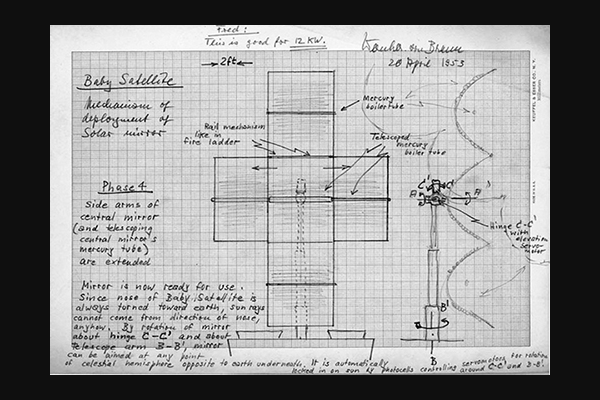 Fred:
This is good for 12 KW.
Wernher von Braun
28 April 1953
2ft
Baby Satellite
Mechanism of
deployment of
Solar mirror
Mercury
boiler tube
Rail mechanism
like in
fire ladder
Telescoped
mercury
boiler tube
Phase 4
Side arms of
central mirror
(and telescoping
central mirror's
mercury tube)
are extended
C'
C'
A
A'
Hinge C-C'
(with
elevation
servo-
motor)
B'
B
Mirror is now ready for use.
Since nose of Baby Satellite is
always turned toward earth, sun rays
cannot come from direction of nose,
anyhow. By rotation of mirror
about hinge C-C' and about
telescope arm B-B', mirror
can be aimed at any point
of celestial hemisphere opposite to earth underneath. It is automatically
locked in on sun by photocells controlling servomotors for rotation
around C-C' and B-B'.
KEUFFEL & ESSER CO., N. Y.